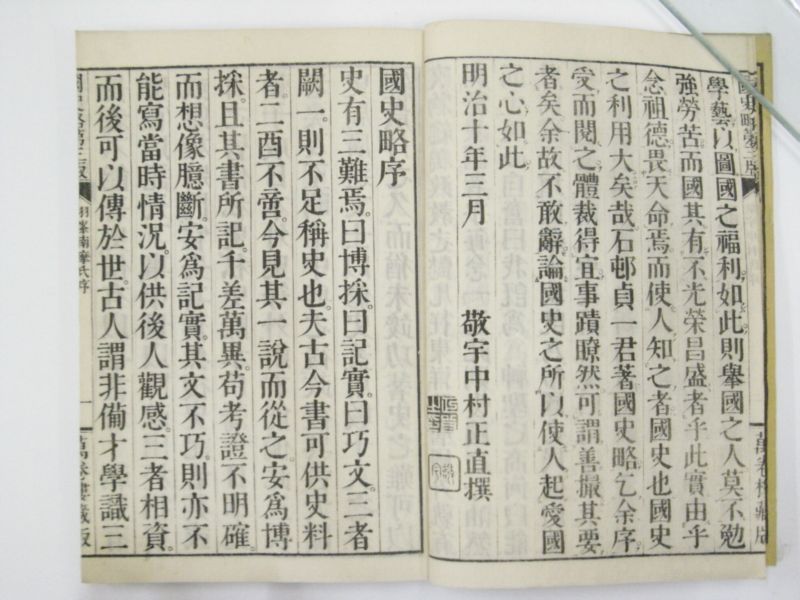 學藝以圖國之福利如此則舉國之人莫不勉
強勞苦而國其有不光榮昌盛者乎此實由乎
念祖德畏天命焉而使人知之者國史也國史
之利用大矣哉石邨貞一君著國史略乞余序
受而閱之體裁得宜事蹟瞭然可謂善撮其要
者矣余故不敢辭論國史之所以使人起愛國
之心如此
明治十年三月
敬宇中村正直撰
國史略序
史有三難焉曰博採曰記實曰巧文三者
闕一則不足稱史也夫古今書可供史料
者二酉不啻今見其一說而從之安爲博
採且其書所記千差萬異苟考證不明確
而想像臆斷安爲記實其文不巧則亦不
能寫當時情況以供後人觀感三者相資
而後可以傳於世古人謂非備才學識三
羽峯南摩氏序
一
萬卷樓藏版